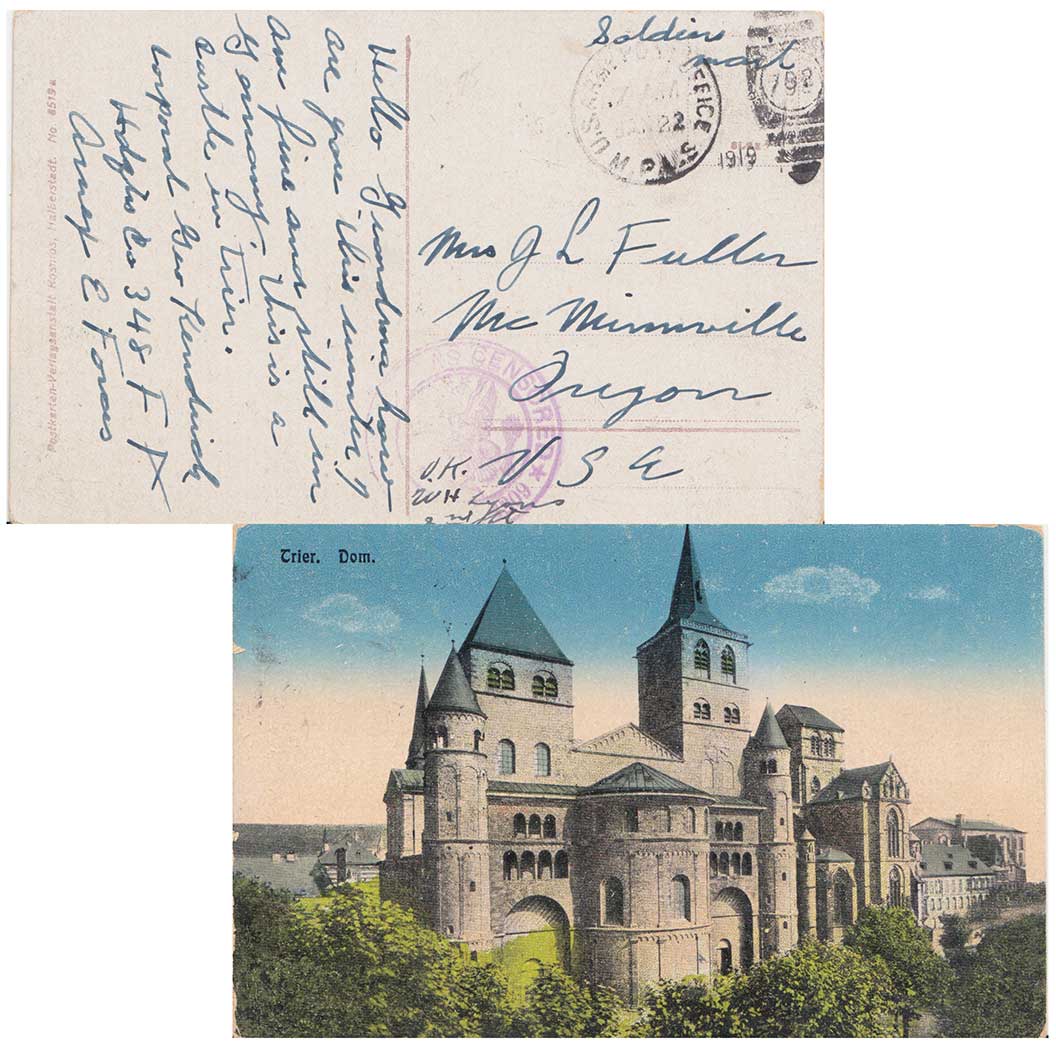 Hello Grandma how
are you this winter I
am fine and still in
Germany this is a
castle in Trier.
corporal Geo Kendrick
Hdqtrs Co 348 F A
Army E Forces
Postkarten-Verlagsanstalt Kosmos, Halberstadt. No. 8519a
Soldiers
mail
U.S. ARMY POST OFFICE
M.P.E.S.
JAN 22
1919
792
Mrs J L Fuller
Mc Minnville
Oregon
U S A
CENSORED
O.K.
WH Lyons
2nd Lt
Trier. Dom.